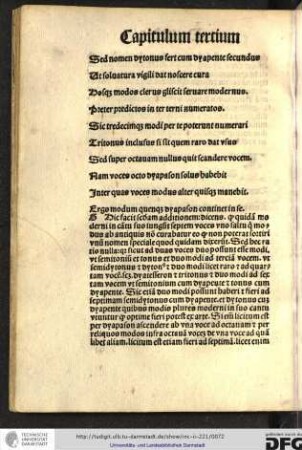 Capitulum tertium
Sed nomen dytonus fert cum dyapente secundus
Ut soluatura vigili dat noscere cura
Hosq̃ modos clerus gliscit seruare modernus.
Preter predictos in ter terni numeratos.
Sic tredecimq̃ modi per te poterunt numerari
Tritonus inclusus si sit quem raro dat vsus
Sed super octauam nullus quit scandere vocem.
Nam voces octo dyapason solus habebit
Inter quas voces modus alter quisq̃ manebit.
Ergo modum quenq̃ dyapason continet in se.
Dic facit scḋam additionem: dicens. ꝙ quidã mo
derni in cãtu suo iungũt septem voces
duo ab antiquis nõ curabatur eo ꝙ non poterat sortiri
vnũ nomen speciale quod quidam dixerũt. Sed hec ra
tio nulla: qꝛ sicut ad duas voces duo possũt esse modi,
vt semitoniũ et tonus et duo modi ad terciã vocem. vt
semidytonus ⁊ dyton⁹
tam vocem vt semitonium cum dyapente ⁊ tonus cum
dyapente. Sic etiã duo modi possunt haberi ⁊ fieri ad
septimam semidytonus cum dyapente. et dytonus cuȝ
dyapente quibus modis plures moderni in suo cantu
vtuntur ꝙ optime fieri potest ex arte. Si em̃ licitum est
per dyapason ascendere ab vna voce ad octauam ⁊ per
reliquos modos infra octauã voces de vna voce ad quã
libet aliam: licitum est etiam fieri ad septimã. licet enim
TECHNISCHE UNIVERSITÄT DARMSTADT
http://tudigit.ulb.tu-darmstadt.de/show/inc-ii-221/0072
Universitäts- und Landesbibliothek Darmstadt
gefördert durch die
DFG